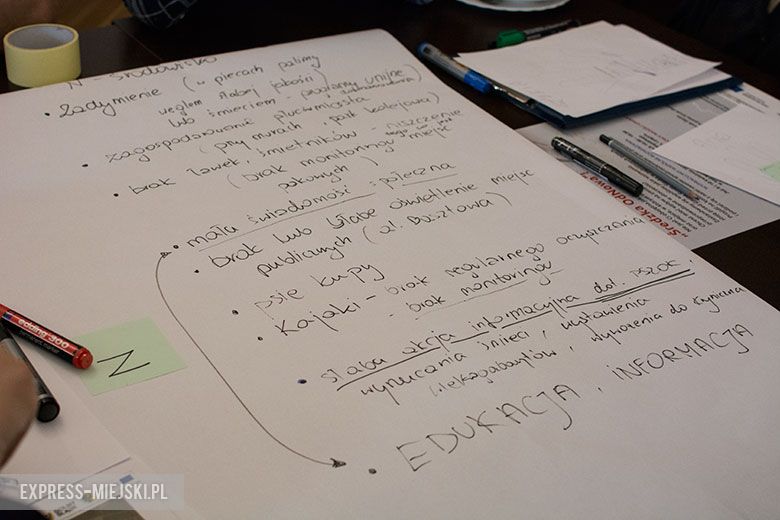 N - ŚRODOWISKO
• zadymienie (w piecach palimy
węglem słabej jakości)
lub śmieciem - programy unijne)
• zagospodarowanie
(przy murach, park kolejowy)
• brak ławek, śmietników - niszczenie
(brak monitoringu miejsc
• mała świadomość społeczna
• brak lub słabe oświetlenie miejsc
publicznych (ul. Basztowa)
• psie kupy
• Kajaki - brak regularnego oczyszczania
- brak monitoringu
• słaba akcja informacyjna dot. PSZOK,
wyrzucania śmieci, wystawienia
wielkogabarytów,
• EDUKACJA, INFORMACJA
N
edding 300
Średzka OdNowa
EXPRESS-MIEJSKI.PL